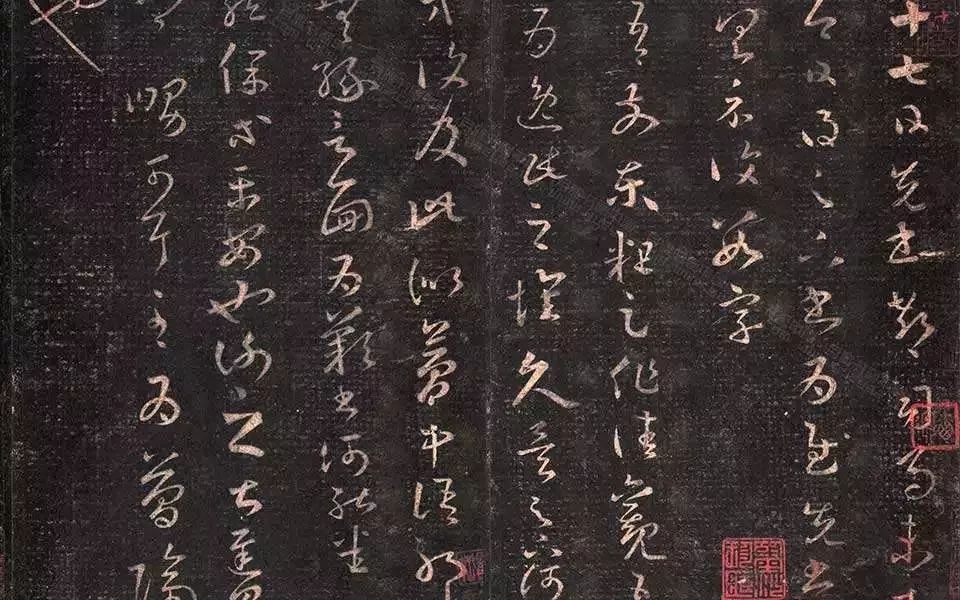 十七日先書郗司馬未
日得足下書為慰先書
具示復數字
吾前東粗足作佳觀
為逸民之懷久矣足下何
復及此似夢中語耶
無緣言面為歎書何能悉
龍保等平安也謝之甚遲見
卿舅可耳至為簡隔
也